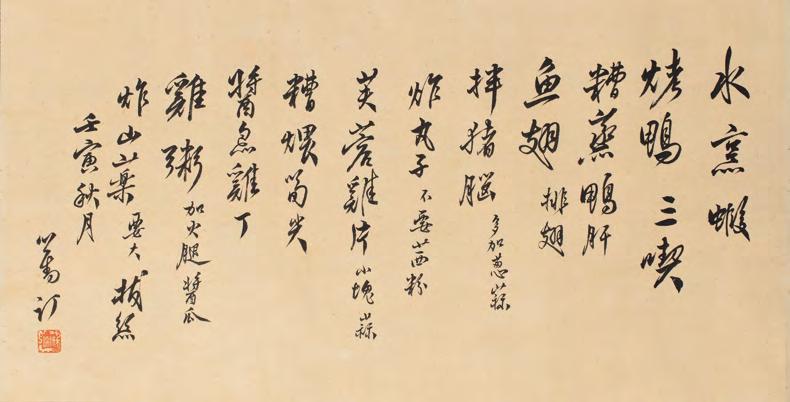 水烹蝦
烤鴨三喫
糟蒸鴨肝
魚翅 排翅
拌豬腦 多加蔥蒜
炸丸子 不要茜粉
芙蓉雞片 小塊蒜
糟煨筍尖
醬雞丁
雞粥 加火腿醬瓜
炸山藥 要大 拔絲
壬寅秋月
心畬訂